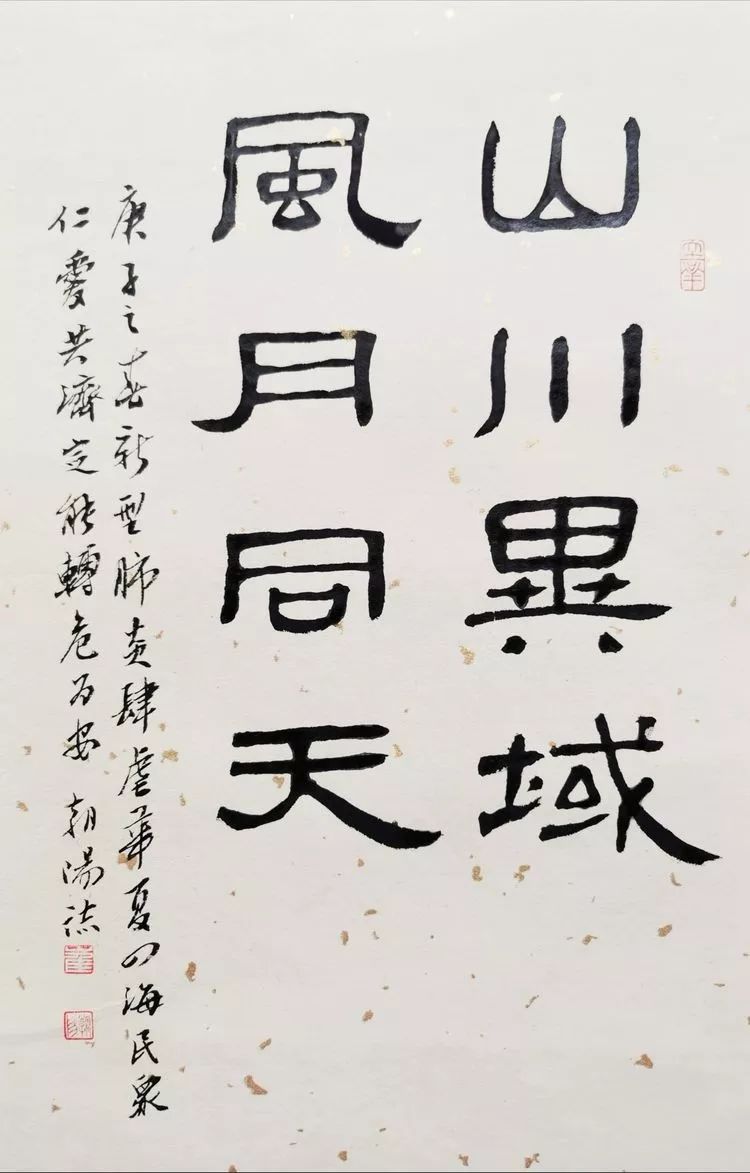 山川異域
風月同天
庚子之春新型肺炎肆虐華夏四海民衆
仁愛共濟定能轉危为安 朝陽誌